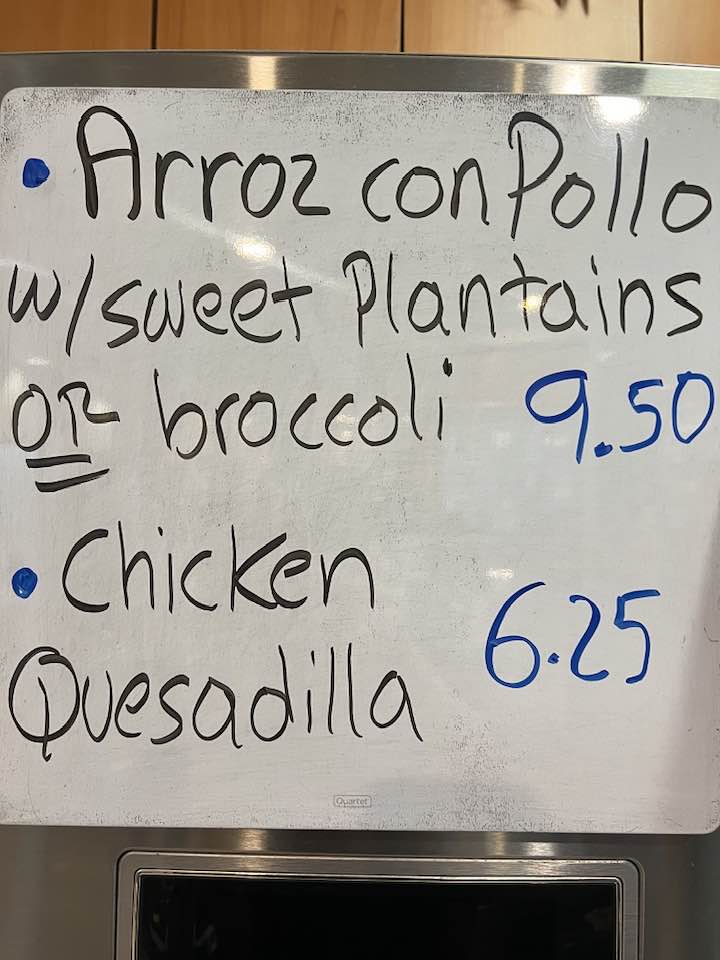 • Arroz con Pollo
w/sweet Plantains
OR broccoli 9.50
• Chicken
Quesadilla 6.25
Quartet